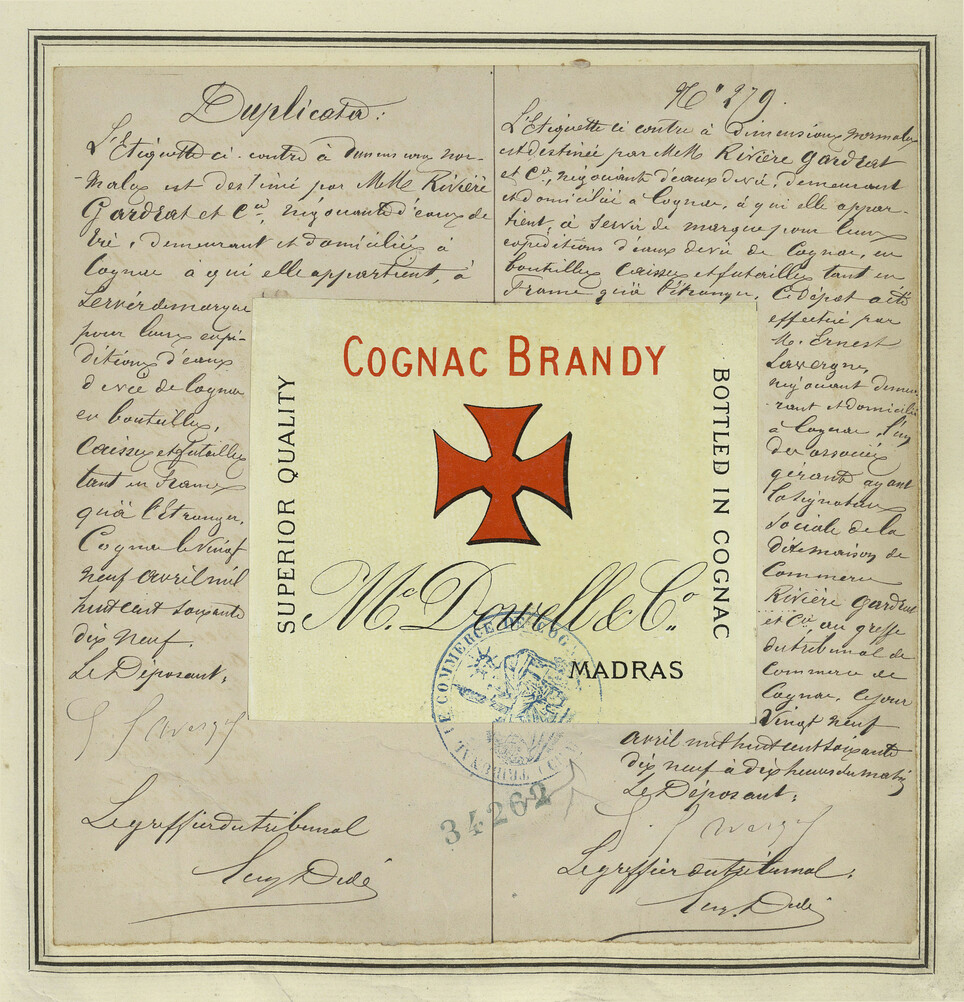 Duplicata.
L'Etiquette ci contre à dimensions nor-
-males est destiné par MM. Rivière
Gardrat et Cie, négociants d'eaux de
vie, demeurant et domiciliés à
Cognac à qui elle appartient, à
servir de marque
pour leurs expé-
ditions d'eaux
de vie de Cognac
en bouteilles,
Caisses et futailles
tant en France
qu'à l'Etranger.
Cognac le vingt
neuf avril mil
huit cent soixante
dix neuf.
Le Déposant,
Le greffier du tribunal
Eug. Dudé
No 279.
L'Etiquette ci contre à dimensions normales
est destinée par MM Rivière Gardrat
et Cie, négociants d'eaux de vie, demeurant
et domiciliés à Cognac, à qui elle appar-
tient, à servir de marque pour leurs
expéditions d'eaux de vie de Cognac, en
bouteilles Caisses et futailles tant en
France qu'à l'étranger. Ce dépôt a été
effectué par
M. Ernest
Lavergne,
négociant demeu-
rant et domicilié
à Cognac, l'un
des associés
gérant ayant
la signature
sociale de la
dite maison de
Commerce
Rivière Gardrat
et Cie, au greffe
du tribunal de
Commerce de
Cognac, ce jour
vingt neuf
avril mil huit cent soixante
dix neuf à dix heures du matin
Le Déposant:
Le greffier du tribunal,
Eug. Dudé
COGNAC BRANDY
SUPERIOR QUALITY
BOTTLED IN COGNAC
Mc. Dowell & Co.
MADRAS
TRIBUNAL DE COMMERCE DE COGNAC
34262